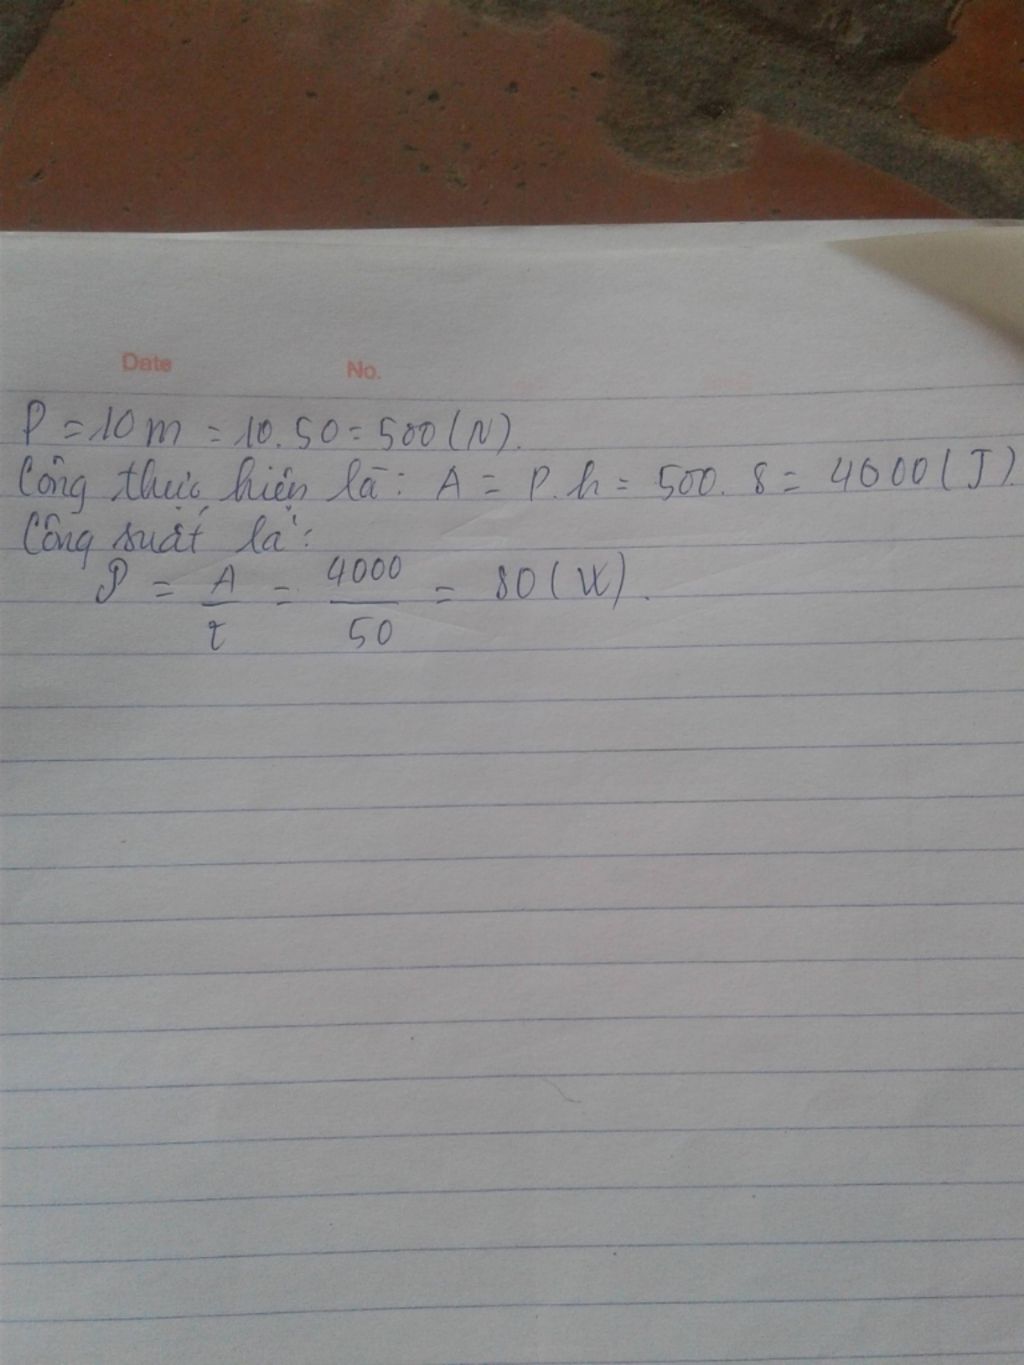 Date No.
P = 10 m = 10.50 = 500 (N).
Công thực hiện là: A = P.h = 500.8 = 4000 (J).
Công suất là:
P = A/t = 4000/50 = 80 (W).